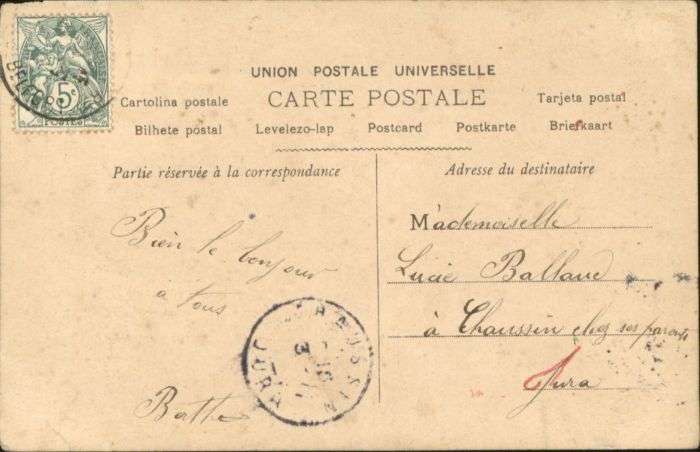 5c
POSTES
BELFORT
UNION POSTALE UNIVERSELLE
CARTE POSTALE
Cartolina postale
Tarjeta postal
Bilhete postal
Levelezo-lap
Postcard
Postkarte
Briefkaart
Partie réservée à la correspondance
Adresse du destinataire
Bien le bonjour
à tous
Berthe
Mademoiselle
Lucie Ballaue
à Chaussin chez ses parents
Jura
CHAUSSIN
JURA